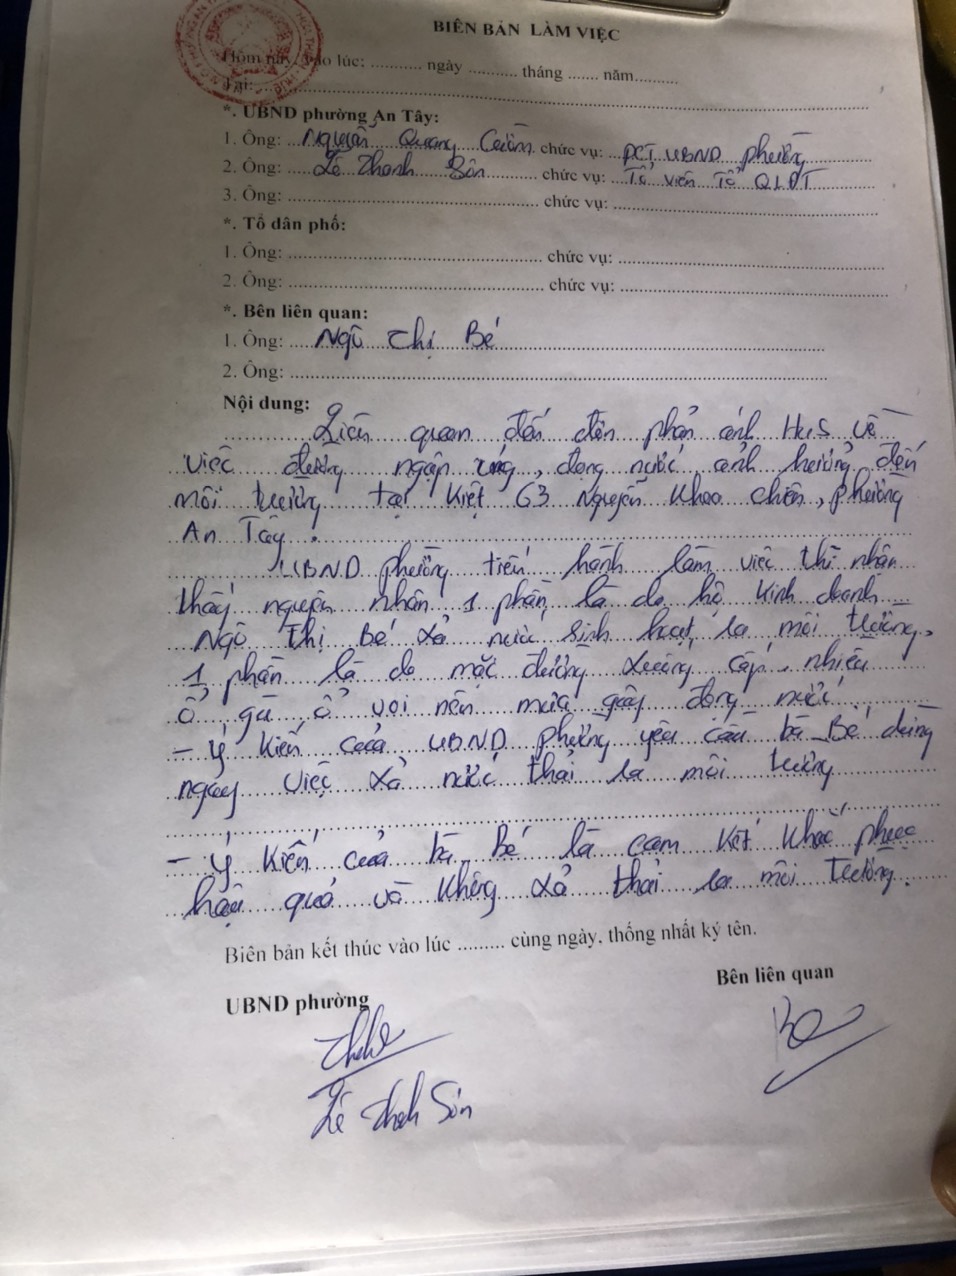 BIÊN BẢN LÀM VIỆC
Hôm nay, vào lúc: .......... ngày .......... tháng ...... năm.........
Tại: ..........
*. UBND phường An Tây:
1. Ông: Nguyễn Quang Cường chức vụ: PCT UBND phường
2. Ông: Lê Thanh Sơn chức vụ: Tổ viên Tổ QLĐT
3. Ông: .......... chức vụ: ..........
*. Tổ dân phố:
1. Ông: .......... chức vụ: ..........
2. Ông: .......... chức vụ: ..........
*. Bên liên quan:
1. Ông: Ngô Thị Bé
2. Ông: ..........
Nội dung:
Liên quan đến đơn phản ánh HueS về
việc đường ngập úng, đọng nước ảnh hưởng đến
môi trường tại Kiệt 63 Nguyễn Khoa Chiêm, phường
An Tây.
UBND phường tiến hành làm việc thì nhận
thấy nguyên nhân 1 phần là do hộ kinh doanh
Ngô Thị Bé xả nước sinh hoạt ra môi trường,
1 phần là do mặt đường xuống cấp nhiều
ổ gà, ổ voi nên mưa gây đọng nước.
- Ý kiến của UBND phường yêu cầu bà Bé dừng
ngay việc xả nước thải ra môi trường
- Ý kiến của bà Bé là cam kết khắc phục
hậu quả và không xả thải ra môi trường.
Biên bản kết thúc vào lúc ......... cùng ngày, thống nhất ký tên.
UBND phường Bên liên quan
Lê Thanh Sơn